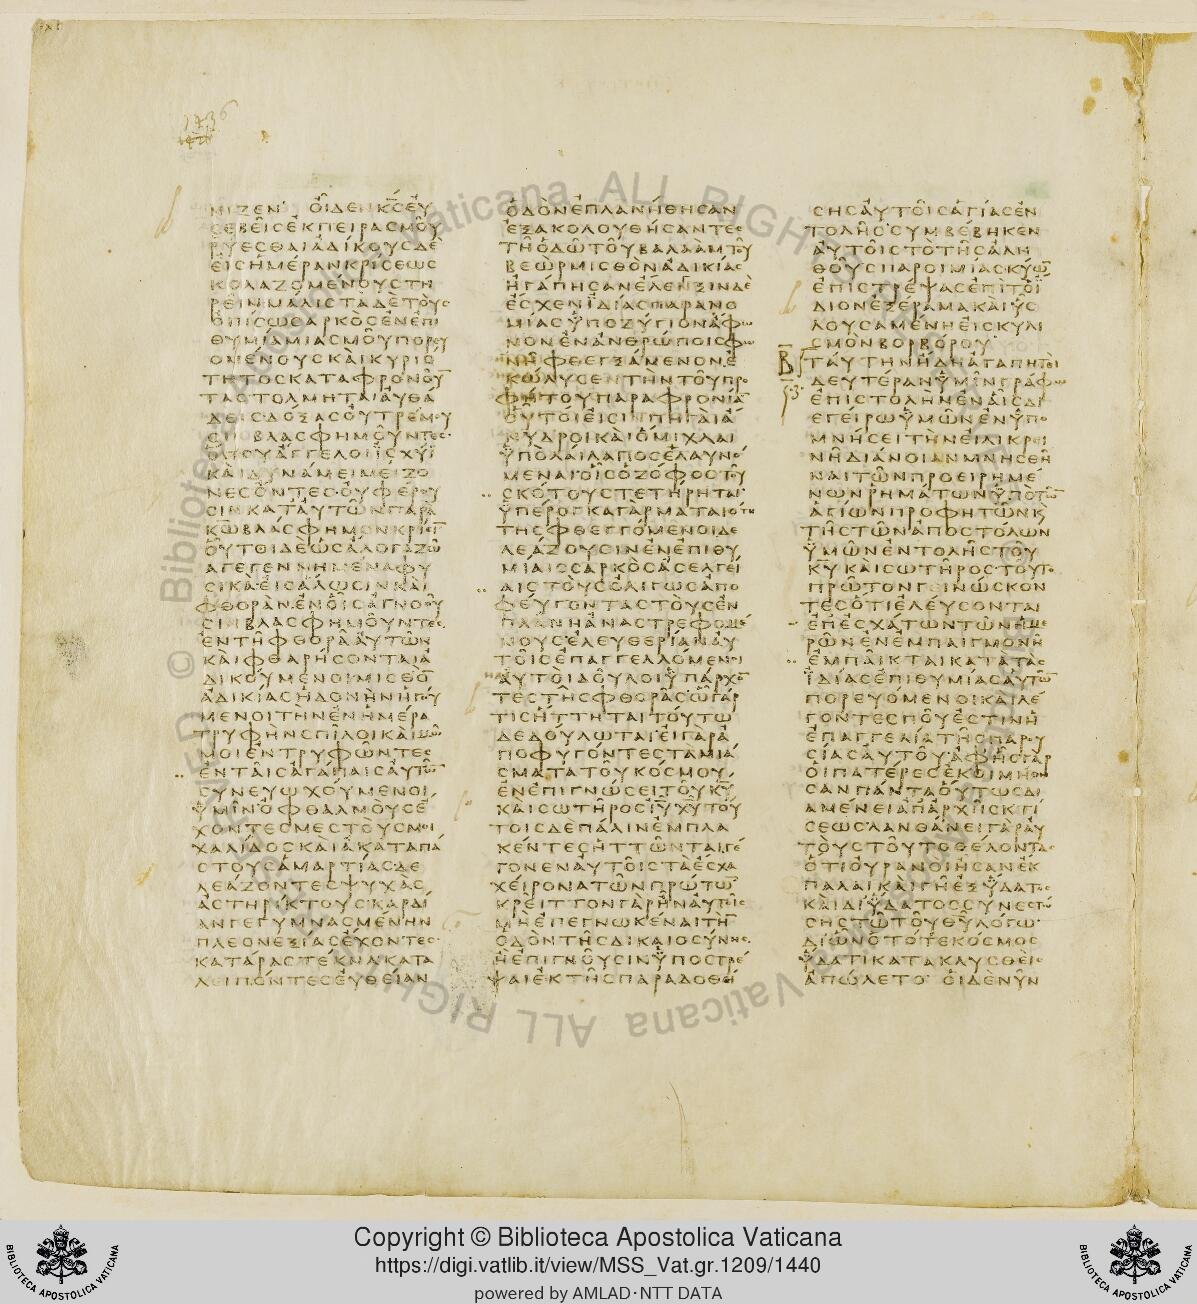 1436
ΜΙΖΕΝ ΟΙΔΕΝ ΚΣ ΕΥ
ΣΕΒΕΙΣ ΕΚ ΠΕΙΡΑΣΜΟΥ
ΡΥΕΣΘΑΙ ΑΔΙΚΟΥΣ ΔΕ
ΕΙΣ ΗΜΕΡΑΝ ΚΡΙΣΕΩΣ
ΚΟΛΑΖΟΜΕΝΟΥΣ ΤΗ
ΡΕΙΝ ΜΑΛΙΣΤΑ ΔΕ ΤΟΥΣ
ΟΠΙΣΩ ΣΑΡΚΟΣ ΕΝ ΕΠΙ
ΘΥΜΙΑ ΜΙΑΣΜΟΥ ΠΟΡΕΥ
ΟΜΕΝΟΥΣ ΚΑΙ ΚΥΡΙΟ
ΤΗΤΟΣ ΚΑΤΑΦΡΟΝΟΥ
ΤΑΣ ΤΟΛΜΗΤΑΙ ΑΥΘΑ
ΔΕΙΣ ΔΟΞΑΣ ΟΥ ΤΡΕΜΟΥ
ΣΙΝ ΒΛΑΣΦΗΜΟΥΝΤΕΣ
ΟΠΟΥ ΑΓΓΕΛΟΙ ΙΣΧΥΙ
ΚΑΙ ΔΥΝΑΜΕΙ ΜΕΙΖΟ
ΝΕΣ ΟΝΤΕΣ ΟΥ ΦΕΡΟΥ
ΣΙΝ ΚΑΤ ΑΥΤΩΝ ΠΑΡΑ
ΚΩ ΒΛΑΣΦΗΜΟΝ ΚΡΙΣΙ
ΟΥΤΟΙ ΔΕ ΩΣ ΑΛΟΓΑ ΖΩ
Α ΓΕΓΕΝΝΗΜΕΝΑ ΦΥ
ΣΙΚΑ ΕΙΣ ΑΛΩΣΙΝ ΚΑΙ
ΦΘΟΡΑΝ ΕΝ ΟΙΣ ΑΓΝΟΟΥ
ΣΙΝ ΒΛΑΣΦΗΜΟΥΝΤΕΣ
ΕΝ ΤΗ ΦΘΟΡΑ ΑΥΤΩΝ
ΚΑΙ ΦΘΑΡΗΣΟΝΤΑΙ Α
ΔΙΚΟΥΜΕΝΟΙ ΜΙΣΘΟ
ΑΔΙΚΙΑΣ ΗΔΟΝΗΝ ΗΓΟΥ
ΜΕΝΟΙ ΤΗΝ ΕΝ ΗΜΕΡΑ
ΤΡΥΦΗΝ ΣΠΙΛΟΙ ΚΑΙ ΜΩ
ΜΟΙ ΕΝΤΡΥΦΩΝΤΕΣ
ΕΝ ΤΑΙΣ ΑΓΑΠΑΙΣ ΑΥΤΩ
ΣΥΝΕΥΩΧΟΥΜΕΝΟΙ
ΥΜΙΝ ΟΦΘΑΛΜΟΥΣ Ε
ΧΟΝΤΕΣ ΜΕΣΤΟΥΣ ΜΟΙ
ΧΑΛΙΔΟΣ ΚΑΙ ΑΚΑΤΑΠΑ
ΣΤΟΥΣ ΑΜΑΡΤΙΑΣ ΔΕ
ΛΕΑΖΟΝΤΕΣ ΨΥΧΑΣ
ΑΣΤΗΡΙΚΤΟΥΣ ΚΑΡΔΙ
ΑΝ ΓΕΓΥΜΝΑΣΜΕΝΗΝ
ΠΛΕΟΝΕΞΙΑΣ ΕΧΟΝΤΕΣ
ΚΑΤΑΡΑΣ ΤΕΚΝΑ ΚΑΤΑ
ΛΕΙΠΟΝΤΕΣ ΕΥΘΕΙΑΝ
ΟΔΟΝ ΕΠΛΑΝΗΘΗΣΑΝ
ΕΞΑΚΟΛΟΥΘΗΣΑΝΤΕΣ
ΤΗ ΟΔΩ ΤΟΥ ΒΑΛΑΑΜ ΤΟΥ
ΒΕΩΡ ΜΙΣΘΟΝ ΑΔΙΚΙΑΣ
ΗΓΑΠΗΣΑΝ ΕΛΕΓΞΙΝ ΔΕ
ΕΣΧΕΝ ΙΔΙΑΣ ΠΑΡΑΝΟ
ΜΙΑΣ ΥΠΟΖΥΓΙΟΝ ΑΦΩ
ΝΟΝ ΕΝ ΑΝΘΡΩΠΟΙΣ ΦΩ
ΝΗ ΦΘΕΓΞΑΜΕΝΟΝ Ε
ΚΩΛΥΣΕΝ ΤΗΝ ΤΟΥ ΠΡΟ
ΦΗΤΟΥ ΠΑΡΑΦΡΟΝΙΑ
ΟΥΤΟΙ ΕΙΣΙ ΠΗΓΑΙ Α
ΝΥΔΡΟΙ ΚΑΙ ΟΜΙΧΛΑΙ
ΥΠΟ ΛΑΙΛΑΠΟΣ ΕΛΑΥΝΟ
ΜΕΝΑΙ ΟΙΣ Ο ΖΟΦΟΣ ΤΟΥ
ΣΚΟΤΟΥΣ ΤΕΤΗΡΗΤΑΙ
ΥΠΕΡΟΓΚΑ ΓΑΡ ΜΑΤΑΙΟΤΗ
ΤΗΣ ΦΘΕΓΓΟΜΕΝΟΙ ΔΕ
ΛΕΑΖΟΥΣΙΝ ΕΝ ΕΠΙΘΥ
ΜΙΑΙΣ ΣΑΡΚΟΣ ΑΣΕΛΓΕΙ
ΑΙΣ ΤΟΥΣ ΟΛΙΓΩΣ ΑΠΟ
ΦΕΥΓΟΝΤΑΣ ΤΟΥΣ ΕΝ
ΠΛΑΝΗ ΑΝΑΣΤΡΕΦΟΜΕ
ΝΟΥΣ ΕΛΕΥΘΕΡΙΑΝ ΑΥ
ΤΟΙΣ ΕΠΑΓΓΕΛΛΟΜΕΝΟΙ
ΑΥΤΟΙ ΔΟΥΛΟΙ ΥΠΑΡΧΟ
ΤΕΣ ΤΗΣ ΦΘΟΡΑΣ Ω ΓΑΡ
ΤΙΣ ΗΤΤΗΤΑΙ ΤΟΥΤΩ
ΔΕΔΟΥΛΩΤΑΙ ΕΙ ΓΑΡ Α
ΠΟΦΥΓΟΝΤΕΣ ΤΑ ΜΙΑ
ΣΜΑΤΑ ΤΟΥ ΚΟΣΜΟΥ
ΕΝ ΕΠΙΓΝΩΣΕΙ ΤΟΥ ΚΥ
ΚΑΙ ΣΩΤΗΡΟΣ ΙΥ ΧΥ ΤΟΥ
ΤΟΙΣ ΔΕ ΠΑΛΙΝ ΕΜΠΛΑ
ΚΕΝΤΕΣ ΗΤΤΩΝΤΑΙ ΓΕ
ΓΟΝΕΝ ΑΥΤΟΙΣ ΤΑ ΕΣΧΑ
ΧΕΙΡΟΝΑ ΤΩΝ ΠΡΩΤΩ
ΚΡΕΙΤΤΟΝ ΓΑΡ ΗΝ ΑΥΤΟΙΣ
ΜΗ ΕΠΕΓΝΩΚΕΝΑΙ ΤΗ
ΟΔΟΝ ΤΗΣ ΔΙΚΑΙΟΣΥΝΗΣ
Η ΕΠΙΓΝΟΥΣΙΝ ΥΠΟΣΤΡΕ
ΨΑΙ ΕΚ ΤΗΣ ΠΑΡΑΔΟΘΕΙ
ΣΗΣ ΑΥΤΟΙΣ ΑΓΙΑΣ ΕΝ
ΤΟΛΗΣ ΣΥΜΒΕΒΗΚΕΝ
ΑΥΤΟΙΣ ΤΟ ΤΗΣ ΑΛΗ
ΘΟΥΣ ΠΑΡΟΙΜΙΑΣ ΚΥΩ
ΕΠΙΣΤΡΕΨΑΣ ΕΠΙ ΤΟ Ι
ΔΙΟΝ ΕΞΕΡΑΜΑ ΚΑΙ ΥΣ
ΛΟΥΣΑΜΕΝΗ ΕΙΣ ΚΥΛΙ
ΣΜΟΝ ΒΟΡΒΟΡΟΥ
Β ΤΑΥΤΗΝ ΗΔΗ ΑΓΑΠΗΤΟΙ
ΔΕΥΤΕΡΑΝ ΥΜΙΝ ΓΡΑΦΩ
ΕΠΙΣΤΟΛΗΝ ΕΝ ΑΙΣ ΔΙ
ΕΓΕΙΡΩ ΥΜΩΝ ΕΝ ΥΠΟ
ΜΝΗΣΕΙ ΤΗΝ ΕΙΛΙΚΡΙ
ΝΗ ΔΙΑΝΟΙΑΝ ΜΝΗΣΘΗ
ΝΑΙ ΤΩΝ ΠΡΟΕΙΡΗΜΕ
ΝΩΝ ΡΗΜΑΤΩΝ ΥΠΟ ΤΩ
ΑΓΙΩΝ ΠΡΟΦΗΤΩΝ Κ
ΤΗΣ ΤΩΝ ΑΠΟΣΤΟΛΩΝ
ΥΜΩΝ ΕΝΤΟΛΗΣ ΤΟΥ
ΚΥ ΚΑΙ ΣΩΤΗΡΟΣ ΤΟΥΤΟ
ΠΡΩΤΟΝ ΓΕΙΝΩΣΚΟΝ
ΤΕΣ ΟΤΙ ΕΛΕΥΣΟΝΤΑΙ
ΕΠ ΕΣΧΑΤΩΝ ΤΩΝ ΗΜΕ
ΡΩΝ ΕΝ ΕΜΠΑΙΓΜΟΝΗ
ΕΜΠΑΙΚΤΑΙ ΚΑΤΑ ΤΑΣ
ΙΔΙΑΣ ΕΠΙΘΥΜΙΑΣ ΑΥΤΩ
ΠΟΡΕΥΟΜΕΝΟΙ ΚΑΙ ΛΕ
ΓΟΝΤΕΣ ΠΟΥ ΕΣΤΙΝ Η
ΕΠΑΓΓΕΛΙΑ ΤΗΣ ΠΑΡΟΥ
ΣΙΑΣ ΑΥΤΟΥ ΑΦ ΗΣ ΓΑΡ
ΟΙ ΠΑΤΕΡΕΣ ΕΚΟΙΜΗΘΗ
ΣΑΝ ΠΑΝΤΑ ΟΥΤΩΣ ΔΙ
ΑΜΕΝΕΙ ΑΠ ΑΡΧΗΣ ΚΤΙ
ΣΕΩΣ ΛΑΝΘΑΝΕΙ ΓΑΡ ΑΥ
ΤΟΥΣ ΤΟΥΤΟ ΘΕΛΟΝΤΑΣ
ΟΤΙ ΟΥΡΑΝΟΙ ΗΣΑΝ ΕΚ
ΠΑΛΑΙ ΚΑΙ ΓΗ ΕΞ ΥΔΑΤΟΣ
ΚΑΙ ΔΙ ΥΔΑΤΟΣ ΣΥΝΕΣΤΩ
ΣΗΣ ΤΩ ΤΟΥ ΘΥ ΛΟΓΩ
ΔΙ ΩΝ Ο ΤΟΤΕ ΚΟΣΜΟΣ
ΥΔΑΤΙ ΚΑΤΑΚΛΥΣΘΕΙΣ
ΑΠΩΛΕΤΟ ΟΙ ΔΕ ΝΥΝ
© Biblioteca Apostolica Vaticana ALL RIGHTS RESERVED
Copyright © Biblioteca Apostolica Vaticana
https://digi.vatlib.it/view/MSS_Vat.gr.1209/1440
powered by AMLAD·NTT DATA
BIBLIOTECA APOSTOLICA VATICANA
BIBLIOTECA APOSTOLICA VATICANA